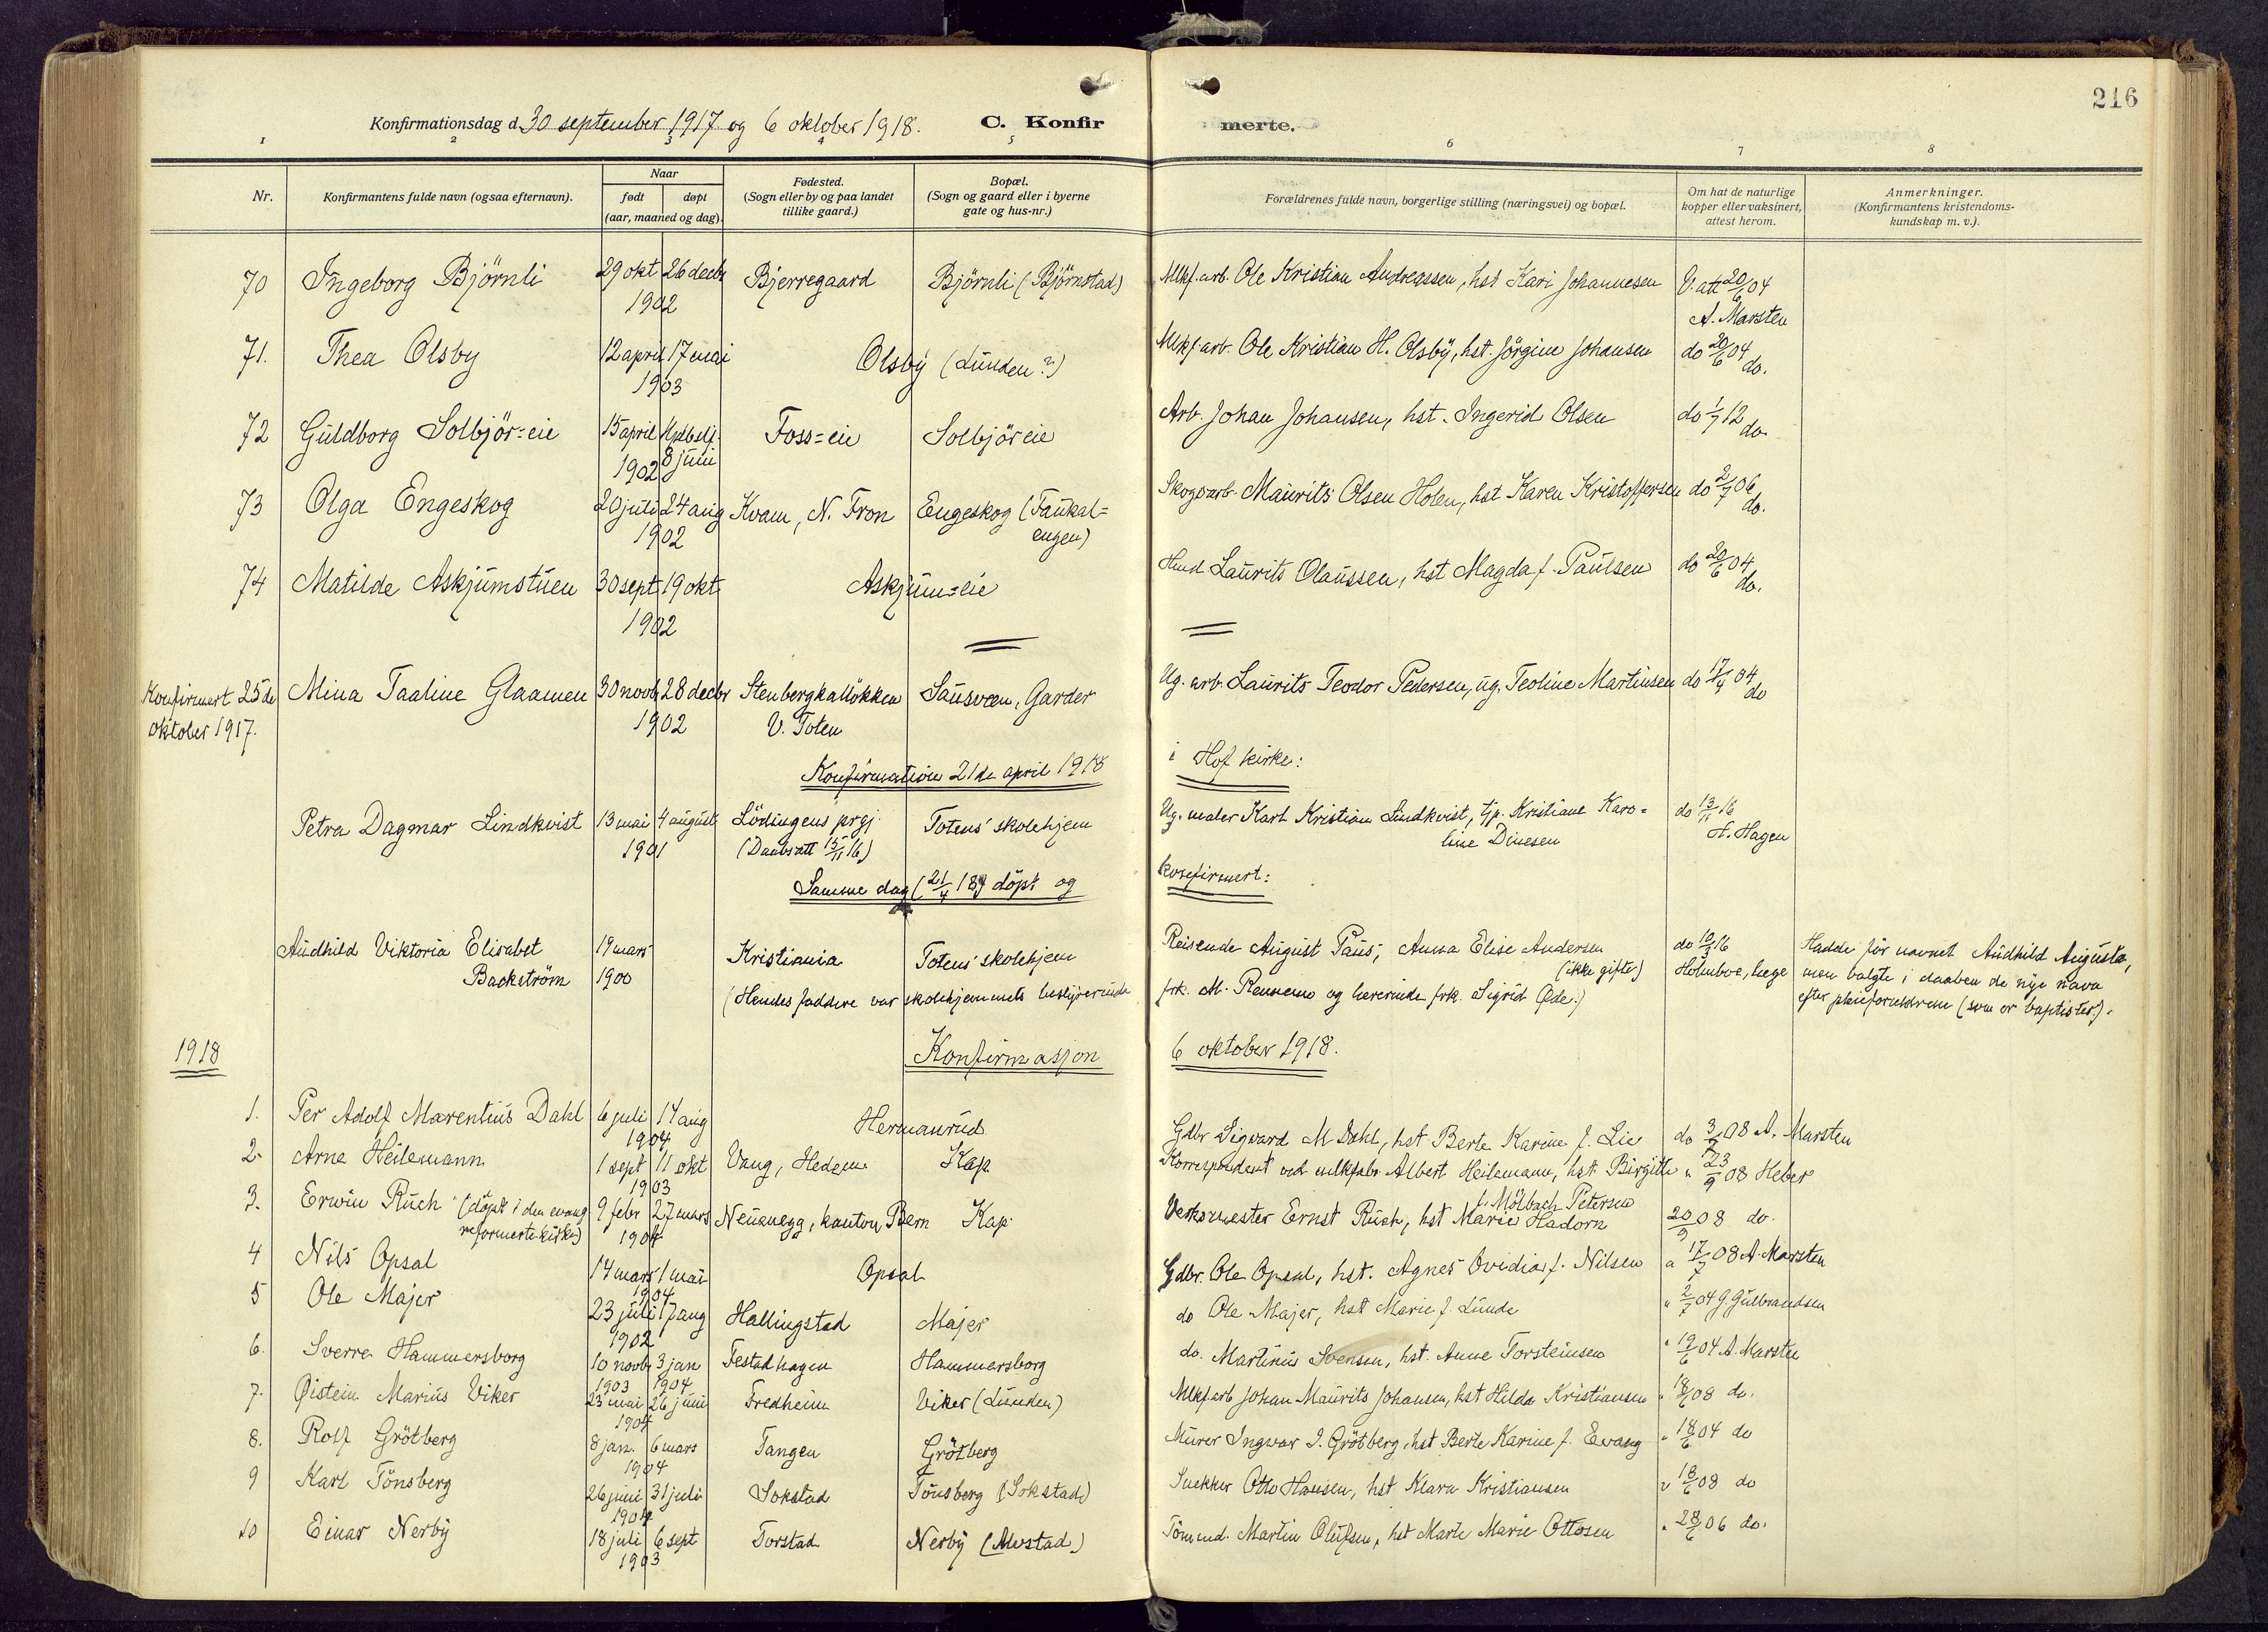 216
Konfirmationsdag d. 30 september 1917 og 6 oktober 1918. C. Konfirmerte.
1 2 3 4 5 6 7 8
Nr.
Konfirmantens fulde navn (ogsaa efternavn).
Naar
født døpt
(aar, maaned og dag).
Fødested.
(Sogn eller by og paa landet
tillike gaard.)
Bopæl.
(Sogn og gaard eller i byerne
gate og hus-nr.)
Forældrenes fulde navn, borgerlige stilling (næringsvei) og bopæl.
Om hat de naturlige
kopper eller vaksinert,
attest herom.
Anmerkninger.
(Konfirmantens kristendoms-
kundskap m. v.).
70 Ingeborg Björnli 29 okt 26 decbr Bjerregaard Björnli (Björnstad) Mlkf.arb. Ole Kristian Andreassen, hst Kari Johannesen V. att 20/6 04
1902 A. Marsten
71. Thea Olsby 12 april 17 mai Olsby (Lunden?) Mlkf arb. Ole Kristian H. Olsby, hst. Jörgine Johansen do 20/6 04 do.
1903
72 Guldborg Solbjör=eie 15 april Hjdb stf. Foss=eie Solbjör eie Arb. Johan Johansen, hst. Ingerid Olsen do 1/7 12 do.
1902 8 juni
73 Olga Engeskog 20 juli 24 aug Kvam, N. Fron Engeskog (Faukal= Skogsarb. Maurits Olsen Holen, hst Karen Kristoffersen do 2/7 06 do.
1902 engen)
74 Matilde Askjumstuen 30 sept 19 okt Askjum=eie Laurits Olaussen, hst Magda f. Paulsen do 20/6 04 do.
1902
Konfirmert 25de Mina Taaline Glaamen 30 novb 28 decbr Stenbergkalløkken Sausveen, Garder Ug. arb. Laurits Teodor Pedersen, ug. Teoline Martinsen do 17/4 04 do
oktober 1917. 1902 V. Toten
Konfirmation 21de april 1918 i Hof kirke:
Petra Dagmar Lindkvist 13 mai 4 august Lödingens prgj. Totens skolehjem Ug. maler Karl Kristian Lindkvist, tjp. Kristiane Karo= do 13/11 16
1901 (Daabsatt 15/11 16) line Dinesen H. Hagen
Samme dag (21/4 18) döpt og konfirmert:
Audhild Viktoria Elisabet 19 mars Kristiania Totens skolehjem Reisende August Paus, Anna Elise Andersen do 10/3 16 Hadde för navnet Audhild Augusta,
Backström 1900 (ikke gifte) Holmboe, læge men valgte i daaben de nye navn
(Hendes faddere var skolehjemmets bestyrerinde frk. M. Rennemo og lærerinde frk. Sigrid Øde.) efter pleieforældrene (som er baptister).
1918 Konfirmasjon 6 oktober 1918.
1. Per Adolf Marentius Dahl 6 juli 14 aug Hermanrud Gdbr Sigvard M Dahl, hst. Berte Karine f. Lie do 3/7 08 A. Marsten
1904
2. Arne Heilemann 1 sept 11 okt Vang, Hedem. Kap Korrespondent ved mlkfabr. Albert Heilemann, hst Birgitte " 23/9 08 Heber
1903 f. Mölbach Petersen
3. Erwin Ruch (döpt i den evang. 9 febr 27 mars Neuenegg, kanton Bern Kap Verksmester Ernst Ruch, hst Marie Hadorn 20/9 08 do.
reformerte kirke) 1904
4 Nils Opsal 14 mars 1 mai Opsal Gdbr. Ole Opsal, hst. Agnes Ovidia f. Nilsen " 17/7 08 A. Marsten
1904
5 Ole Majer 23 juli 17 aug Hallingstad Majer do Ole Majer, hst Marie f. Lunde " 2/7 04 G Gulbrandsen
1902
6. Sverre Hammersborg 10 novb 3 jan Festad hagen Hammersborg do. Martinius Svensen, hst. Anne Torsteinsen " 19/6 04 A. Marsten
1903 1904
7. Øistein Marius Viker 23 mai 26 juni Fredheim Viker (Lunden) Mlkf arb Johan Maurits Johansen, hst Hilda Kristiansen " 18/6 08 do.
1904
8. Rolf Grötberg 8 jan. 6 mars Tangen Grötberg Murer Ingvar I. Grötberg, hst Berte Karine f. Evang " 18/6 04 do
1904
9 Karl Tönsberg 26 juni 31 juli Sokstad Tönsberg (Sokstad) Snekker Otto Hansen, hst Klara Kristiansen " 18/6 08 do
1904
10 Einar Nerby 18 juli 6 sept Torstad Nerby (Alvstad) Tömmd. Martin Olufsen, hst Marte Marie Ottosen " 28/6 06 do.
1903